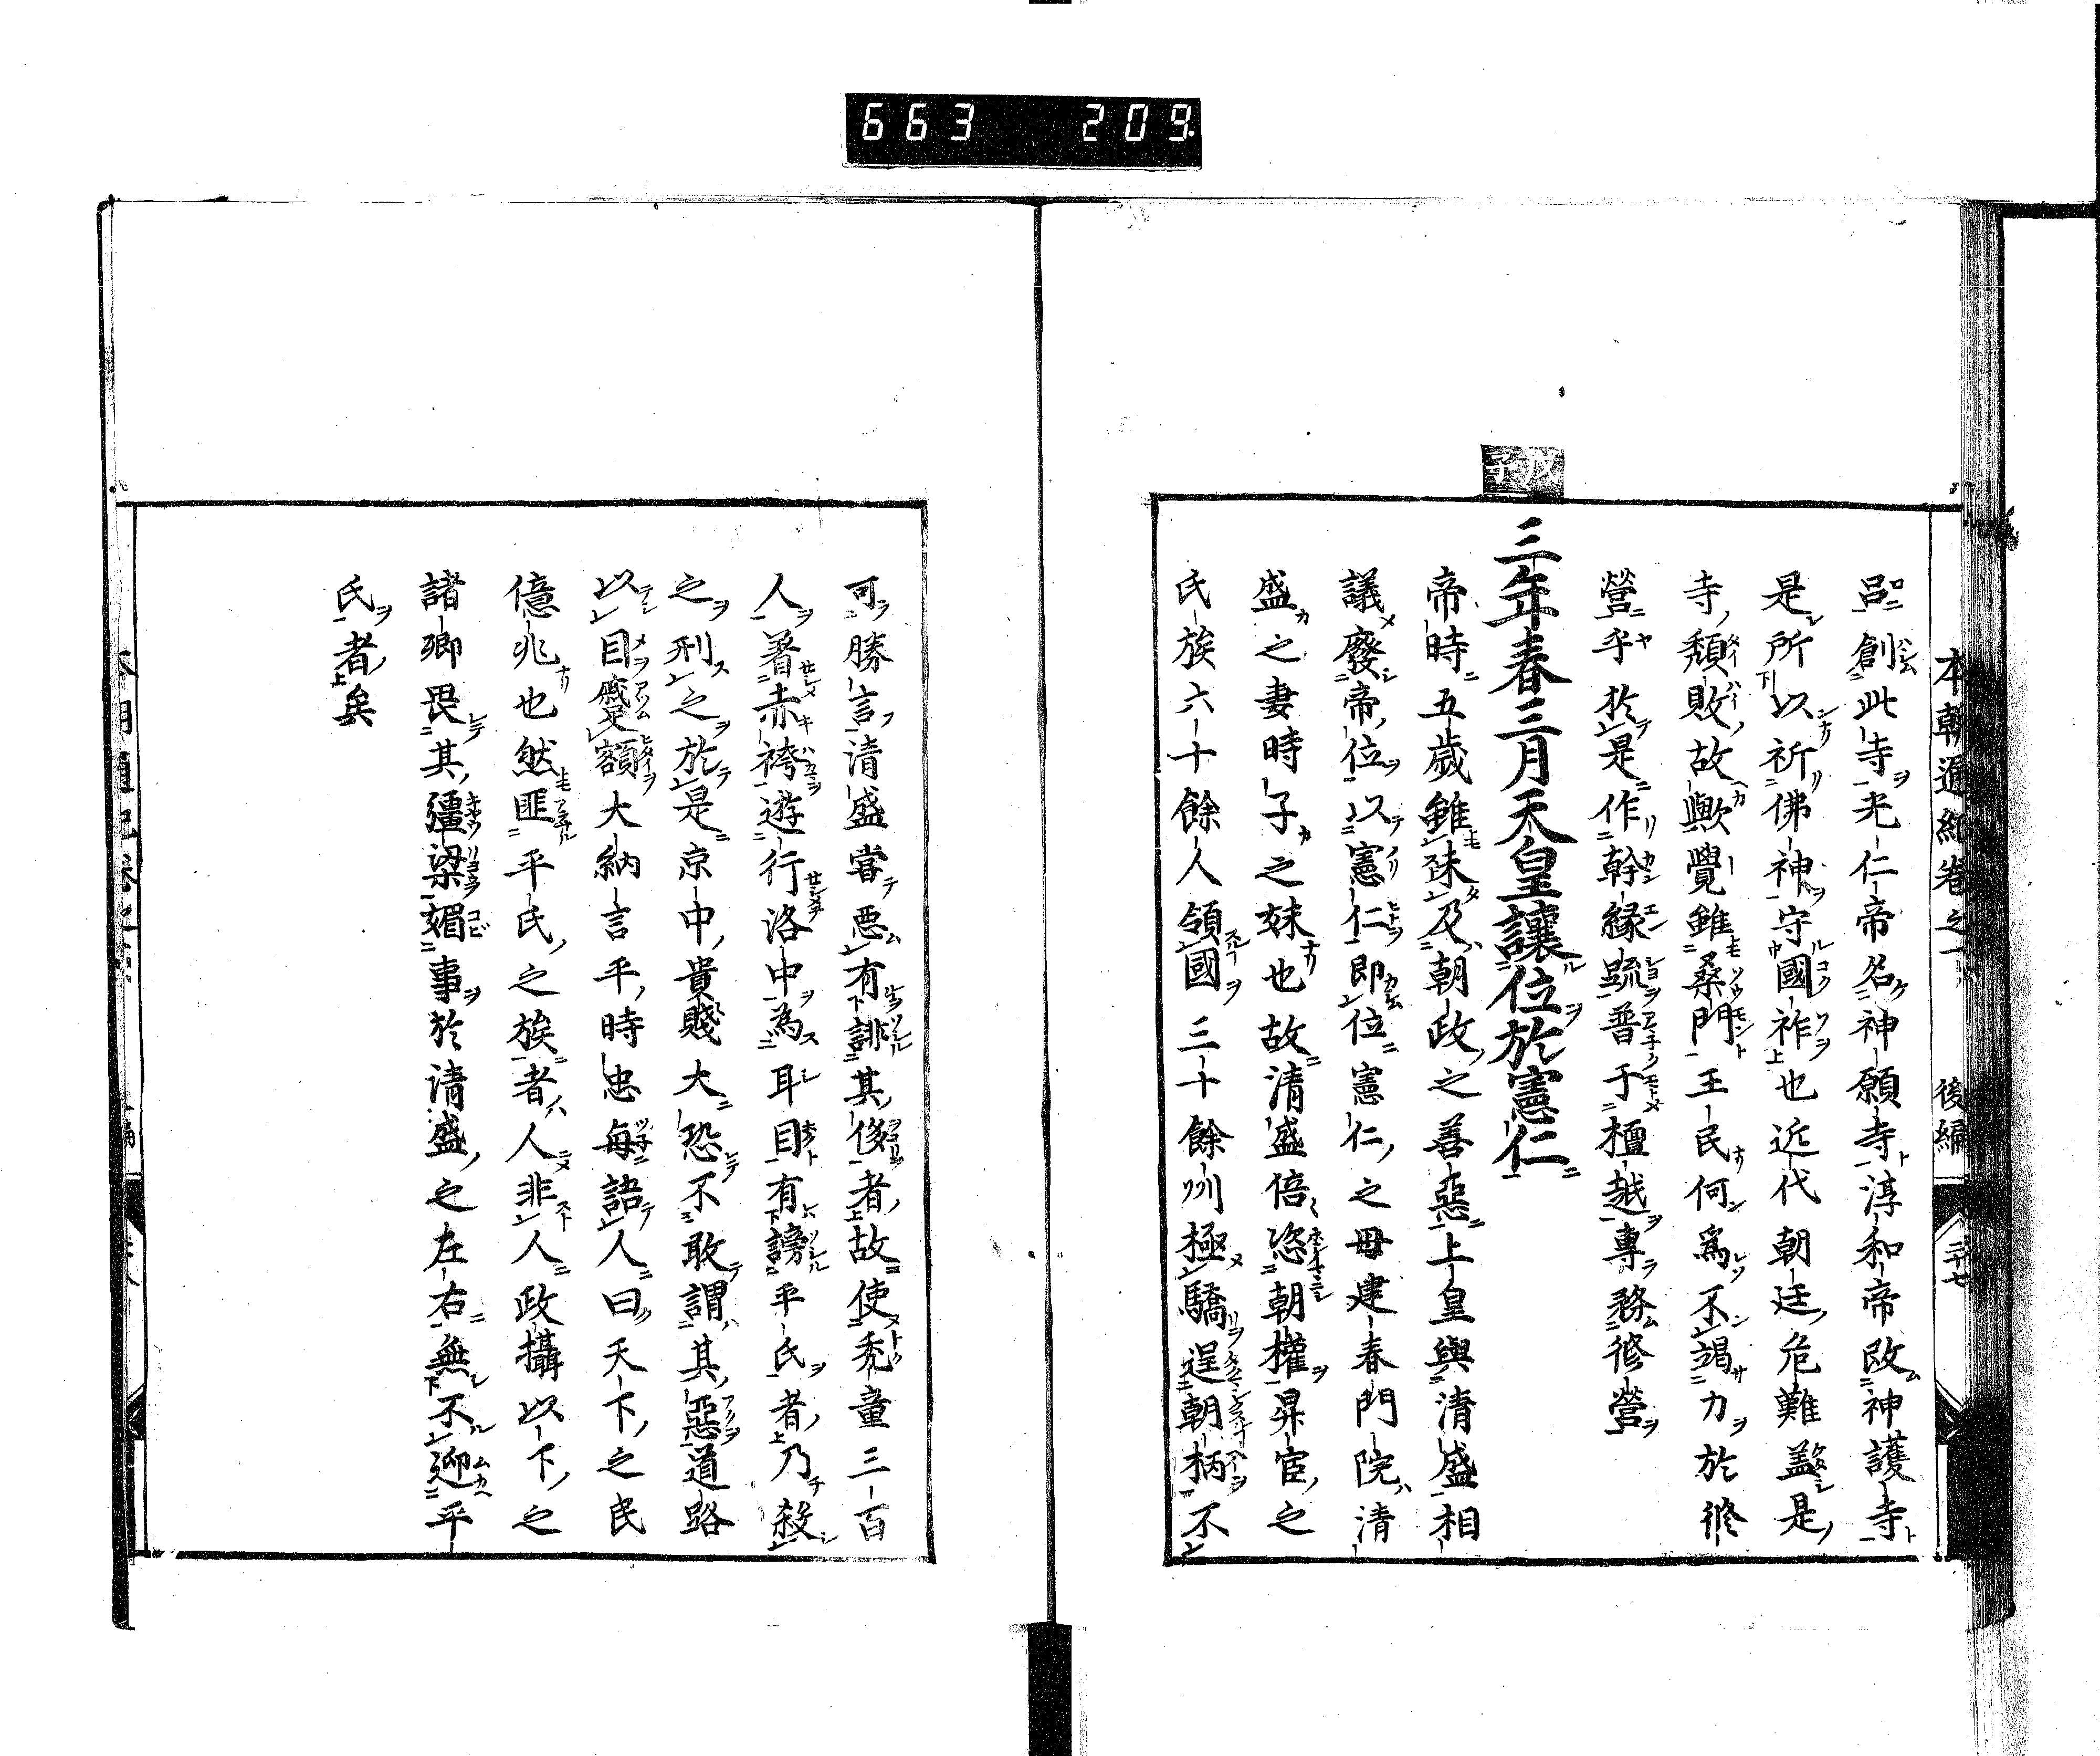 663 209
本朝通紀卷之 後編 二十七
呂創此寺光仁帝名神願寺淳和帝改神護寺
是所以祈佛神守國祚上也近代朝廷危難蓋是
寺頽敗故歟覺雖桑門王民何爲不竭力於修
營乎於是作幹縁䟽普于檀越專務修營
戊子
三年春三月天皇讓位於憲仁
帝時五歳雖未及朝政之善惡上皇與清盛相
議廢帝位以憲仁即位憲仁之母建春門院清
盛之妻時子之妹也故清盛倍恣朝權昇宦之
氏族六十餘人領國三十餘州極驕逞朝柄不
可勝言清盛嘗惡有誹其侈者故使禿童三百
人著赤袴遊行洛中為耳目有謗平氏者乃殺
之刑之於是京中貴賤大恐不敢謂其惡道路
以目蹙額大納言平時忠每語人曰天下之民
億兆也然匪平氏之族者人非人政攝以下之
諸卿畏其彊梁媚事於清盛之左右無不迎平
氏者矣